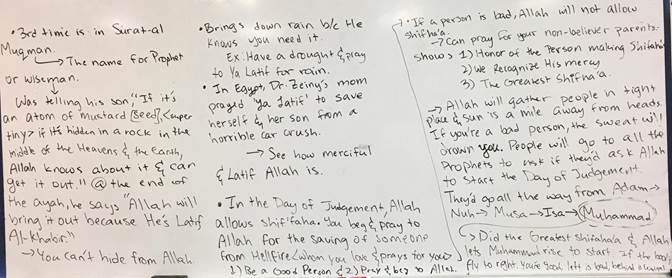 • 3rd time is in Surat-al
Muqman.
→ The name for Prophet
or wiseman.
↓
Was telling his son, "If it's
an atom of mustard (seed), super
tiny & if it's hidden in a rock in the
middle of the Heavens & the Earth,
Allah knows about it & can
get it out!" @ the end of
the ayah, he says "Allah will
bring it out because He's Latif
Al-Khabir."
→ You can't hide from Allah
• Brings down rain b/c He
knows you need it
Ex: Have a drought & pray
to Ya Latif for rain.
• In Egypt, Dr. Zeiny's mom
prayed 'Ya Latif' to save
herself & her son from a
horrible car crush.
→ See how merciful
& Latif Allah is.
• In the Day of Judgement, Allah
allows shifi'faha. You beg & pray to
Allah for the saving of someone
from Hellfire (whom you love & prays for you)
1) Be a Good Person & 2) Pray & beg to Allah.
• If a person is bad, Allah will not allow
shifa'a.
→ Can pray for your non-believer parents.
shows 1) Honor of the Person making Shifaha
2) We Recognize His mercy
3) The Greatest Shifa'a.
→ Allah will gather people in tight
place & sun is a mile away from heads.
If you're a bad person, the sweat will
drown you. People will go to all the
Prophets to ask if they'd ask Allah
to start the Day of Judgement.
They'd go all the way from Adam →
Nuh → Musa → Isa → Muhammad
→ Did the Greatest Shifaha'a & Allah
lets Muhammad rise to start
fly to right, you're good, left = bad, behind